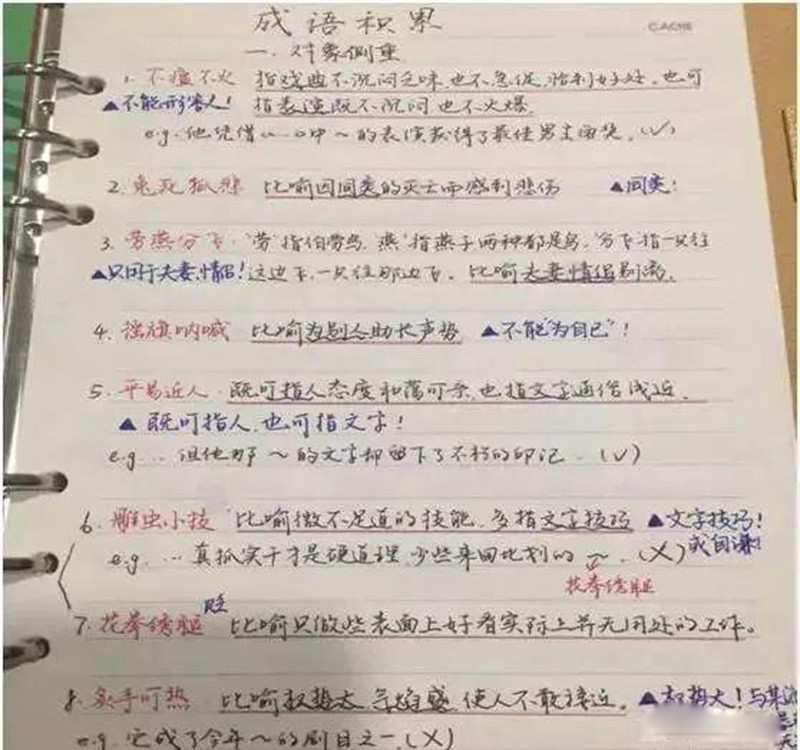 成语积累
CACHE
一. 对象侧重
1. 不瘟不火 指戏曲不沉闷乏味,也不急促,恰到好处,也可
▲不能形容人! 指表演既不沉闷也不火爆.
e.g. 他凭借《…》中~的表演获得了最佳男主角奖. (√)
2. 兔死狐悲 比喻因同类的灭亡而感到悲伤 ▲同类!
3. 劳燕分飞. "劳"指伯劳鸟, "燕"指燕子两种都是鸟, "分飞"指一只往
▲只用于夫妻,情侣! 这边飞,一只往那边飞. 比喻夫妻情侣别离.
4. 摇旗呐喊 比喻为别人助长声势 ▲不能"为自己"!
5. 平易近人. 既可指人态度和蔼可亲,也指文字通俗浅近.
▲ 既可指人,也可指文字!
e.g. … 但他那~的文字却留下了不朽的印记. (√)
6. 雕虫小技 比喻微不足道的技能,多指文字技巧 ▲文字技巧!
或自谦!
e.g. … 真抓实干才是硬道理,少些来回比划的~. (X)
花拳绣腿
7. 花拳绣腿 比喻只做些表面上好看实际上并无用处的工作。
贬
8. 炙手可热 比喻权势大,气焰盛,使人不敢接近. ▲权势大!与某
e.g. 它成了今年~的剧目之一. (X)